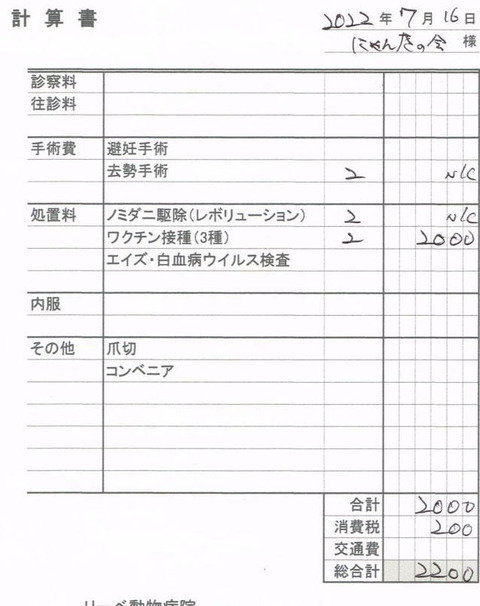 計算書
2022年7月16日
にゃんきの会 様
診察料
往診料
手術費 避妊手術
去勢手術 2 N/C
処置料 ノミダニ駆除(レボリューション) 2 N/C
ワクチン接種(3種) 2 2000
エイズ・白血病ウイルス検査
内服
その他 爪切
コンベニア
合計 2000
消費税 200
交通費
総合計 2200
リーベ動物病院